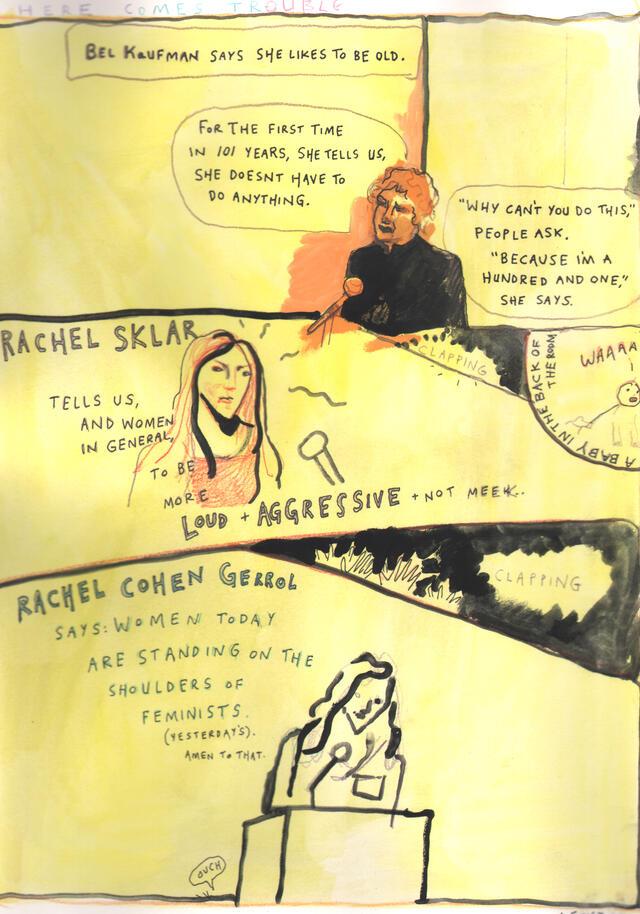 HERE COMES TROUBLE
BEL KAUFMAN SAYS SHE LIKES TO BE OLD.
FOR THE FIRST TIME
IN 101 YEARS, SHE TELLS US,
SHE DOESNT HAVE TO
DO ANYTHING.
"WHY CAN'T YOU DO THIS,"
PEOPLE ASK.
"BECAUSE I'M A
HUNDRED AND ONE,"
SHE SAYS.
CLAPPING
A BABY IN THE BACK OF
THE ROOM
WAAAA
RACHEL SKLAR
TELLS US,
AND WOMEN
IN GENERAL,
TO BE
MORE
LOUD + AGGRESSIVE + NOT MEEK..
CLAPPING
RACHEL COHEN GERROL
SAYS: WOMEN TODAY
ARE STANDING ON THE
SHOULDERS OF
FEMINISTS.
(YESTERDAY'S).
AMEN TO THAT.
OUCH